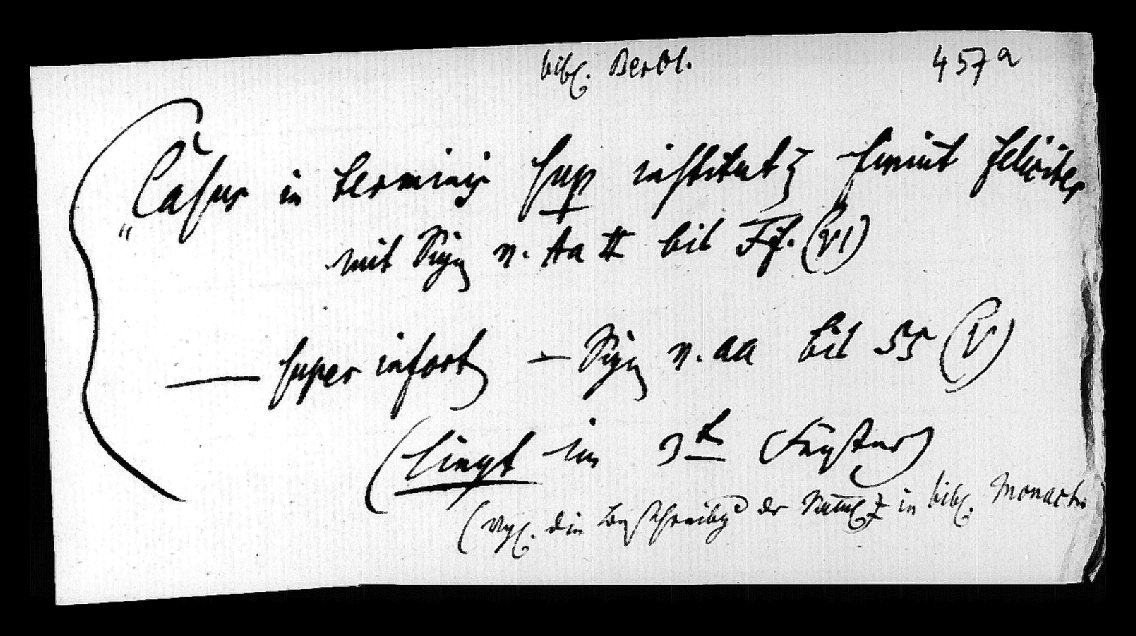 bibl. Berol. 457a
"Casus in terminis sup institut finiut feliciter
mit Sign n. Aa II bis Ff. (VI)
— super infort – Sign n. aa bis SS (V)
(liegt im 3t Fenster)
(Vgl. die Beschreibg der in bibl. Monach